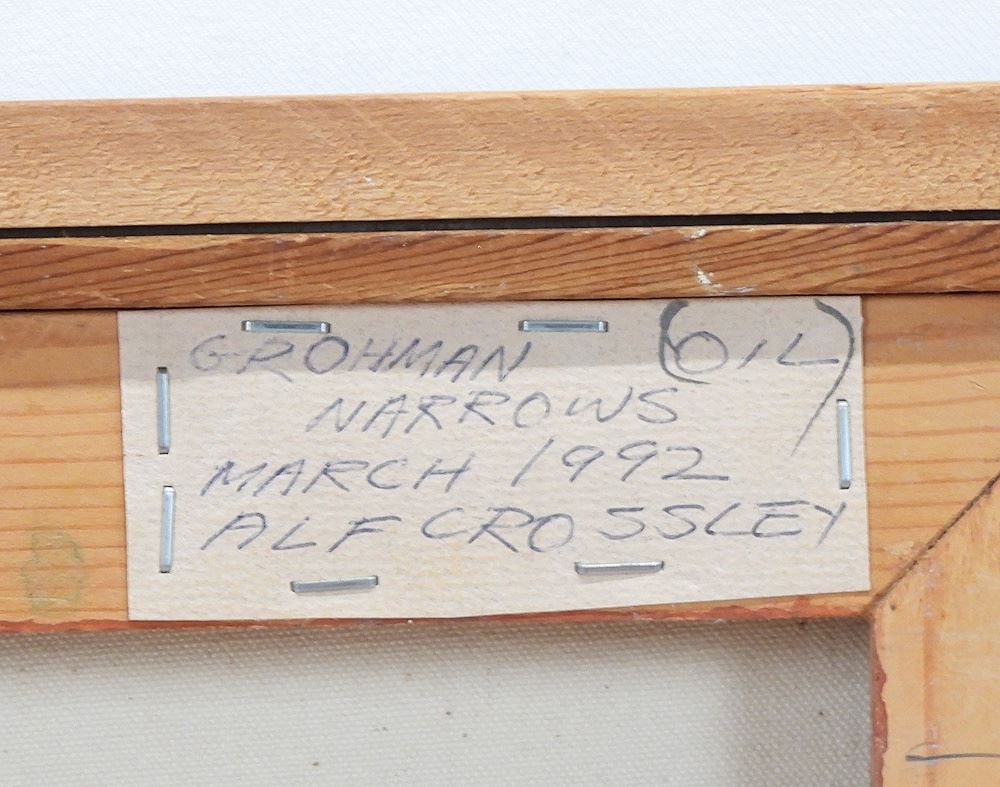 GROHMAN (OIL)
NARROWS
MARCH 1992
ALF CROSSLEY